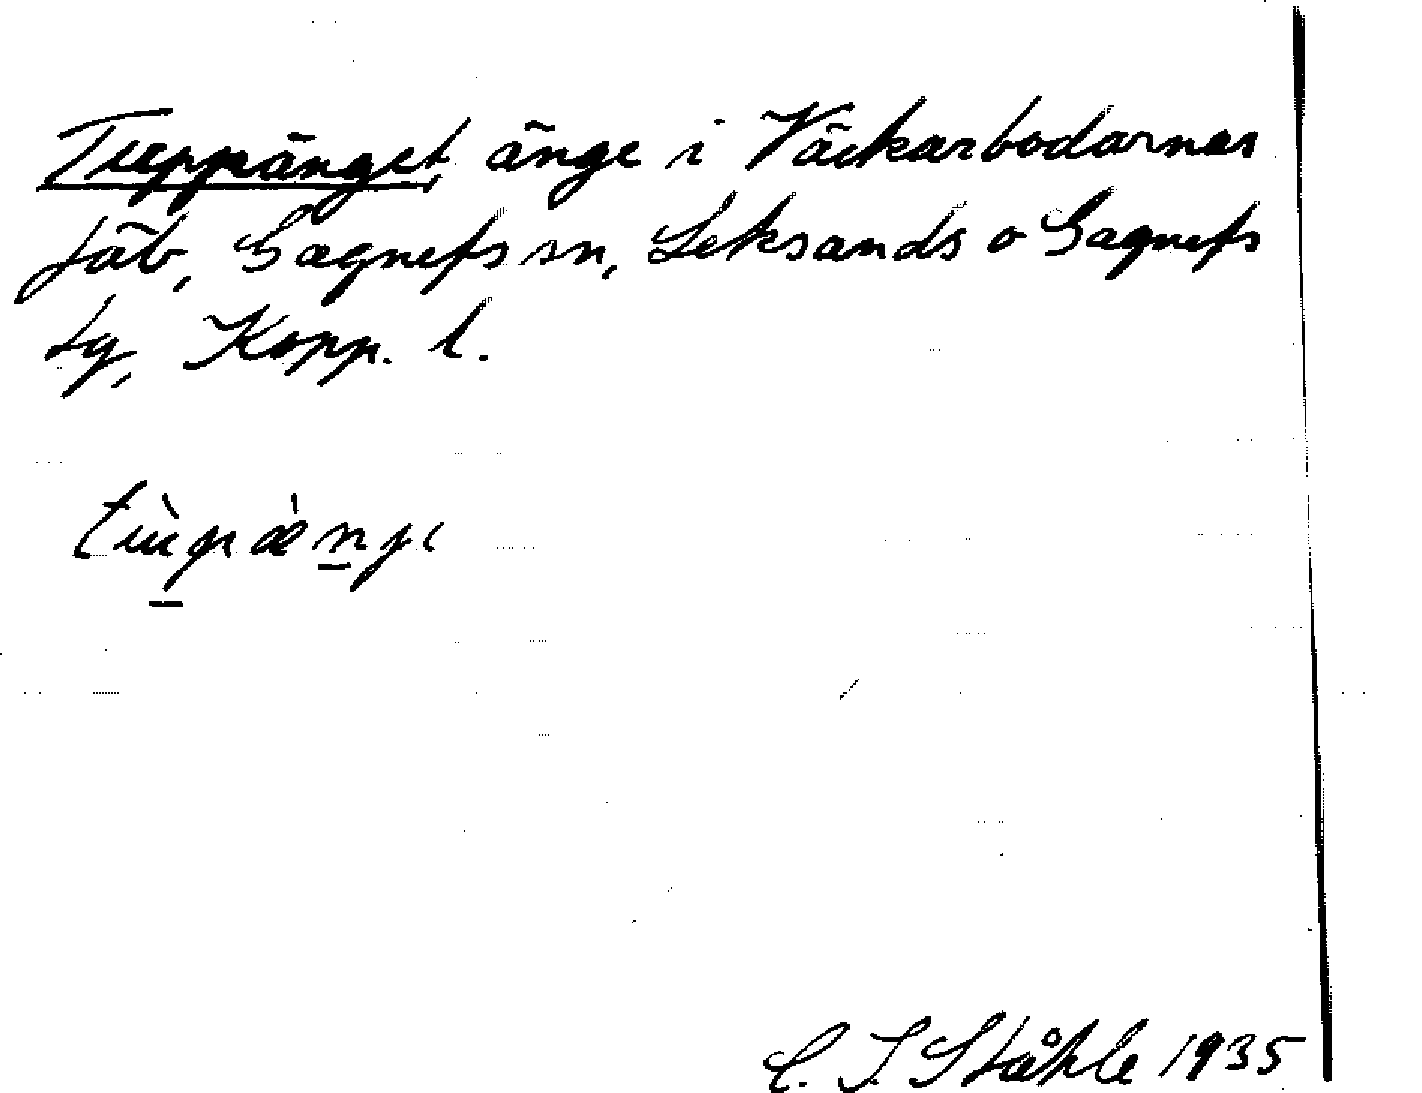 Tuppänget, änge i Väckarbodarnas
fäb, Gagnefs sn, Leksands o Gagnefs
tg, Kopp. l.
C. I. Ståhle 1935